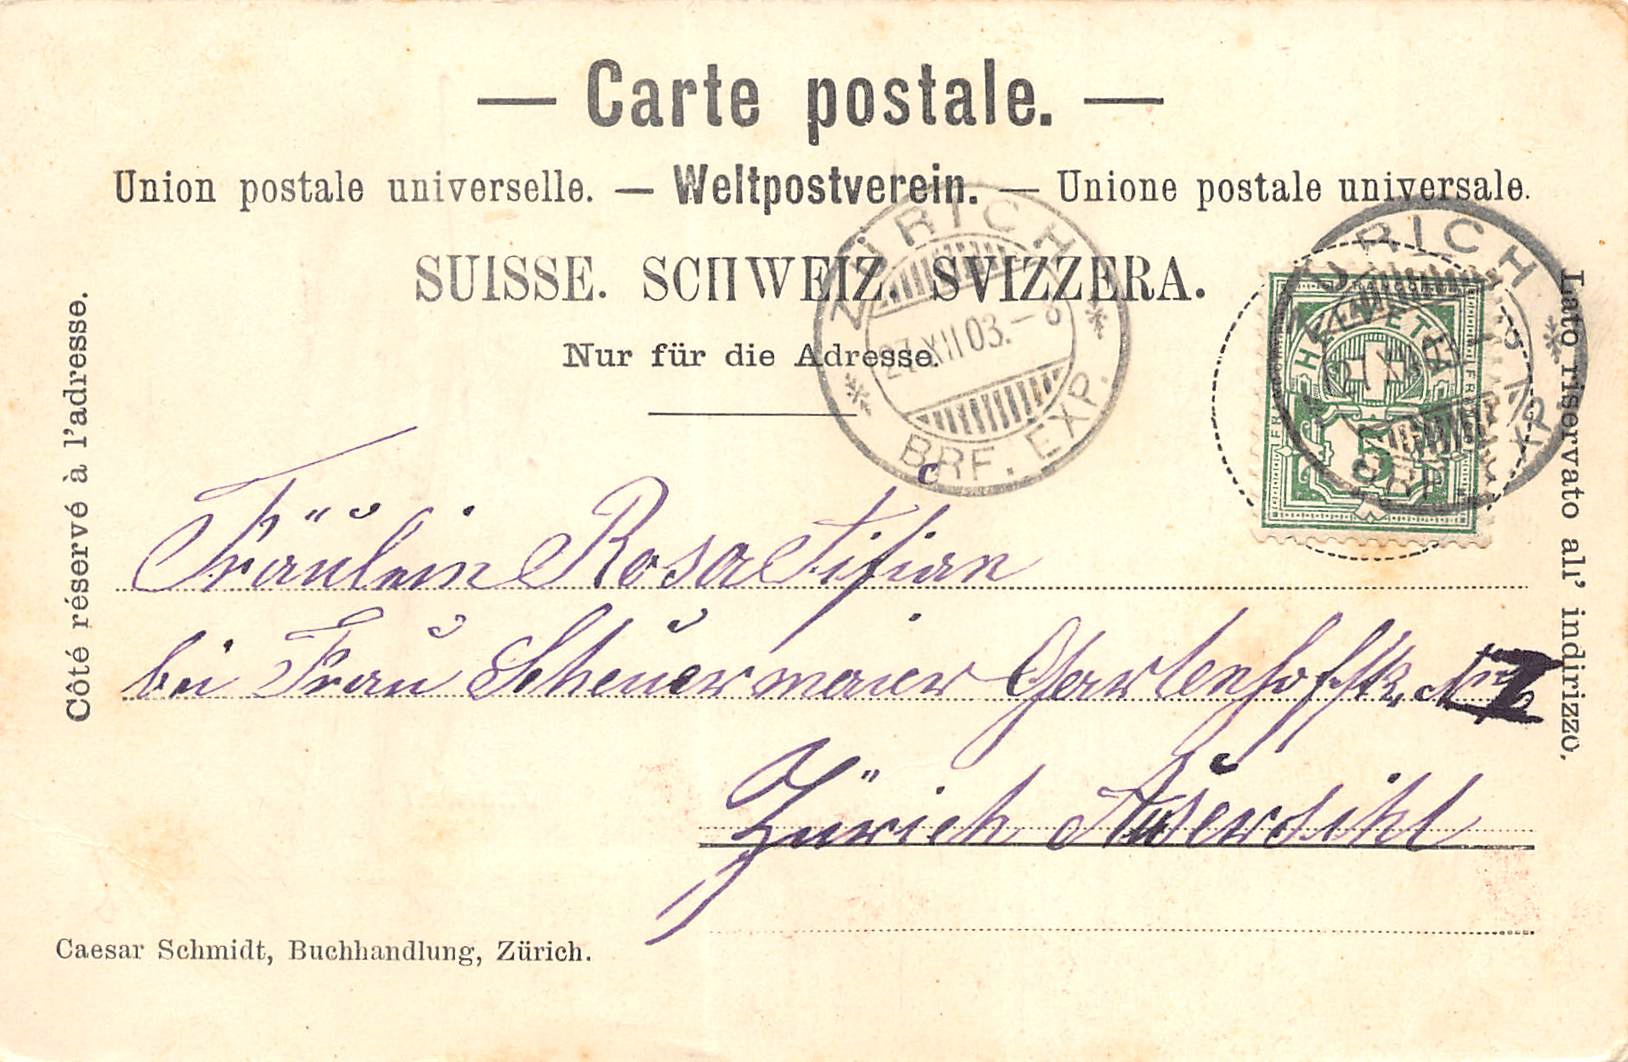 — Carte postale. —
Union postale universelle. — Weltpostverein. — Unione postale universale.
SUISSE. SCHWEIZ. SVIZZERA.
Nur für die Adresse.
Côté réservé à l'adresse.
Lato riservato all' indirizzo.
ZÜRICH
27.XII.03.–8
BRF. EXP.
ZÜRICH
HELVETIA
FR
FR
5
EXP.
Fräulein Rosa Tifian
bei Frau Scheuermaier Gartenhofstr. No
Zürich Auserdihl
Caesar Schmidt, Buchhandlung, Zürich.